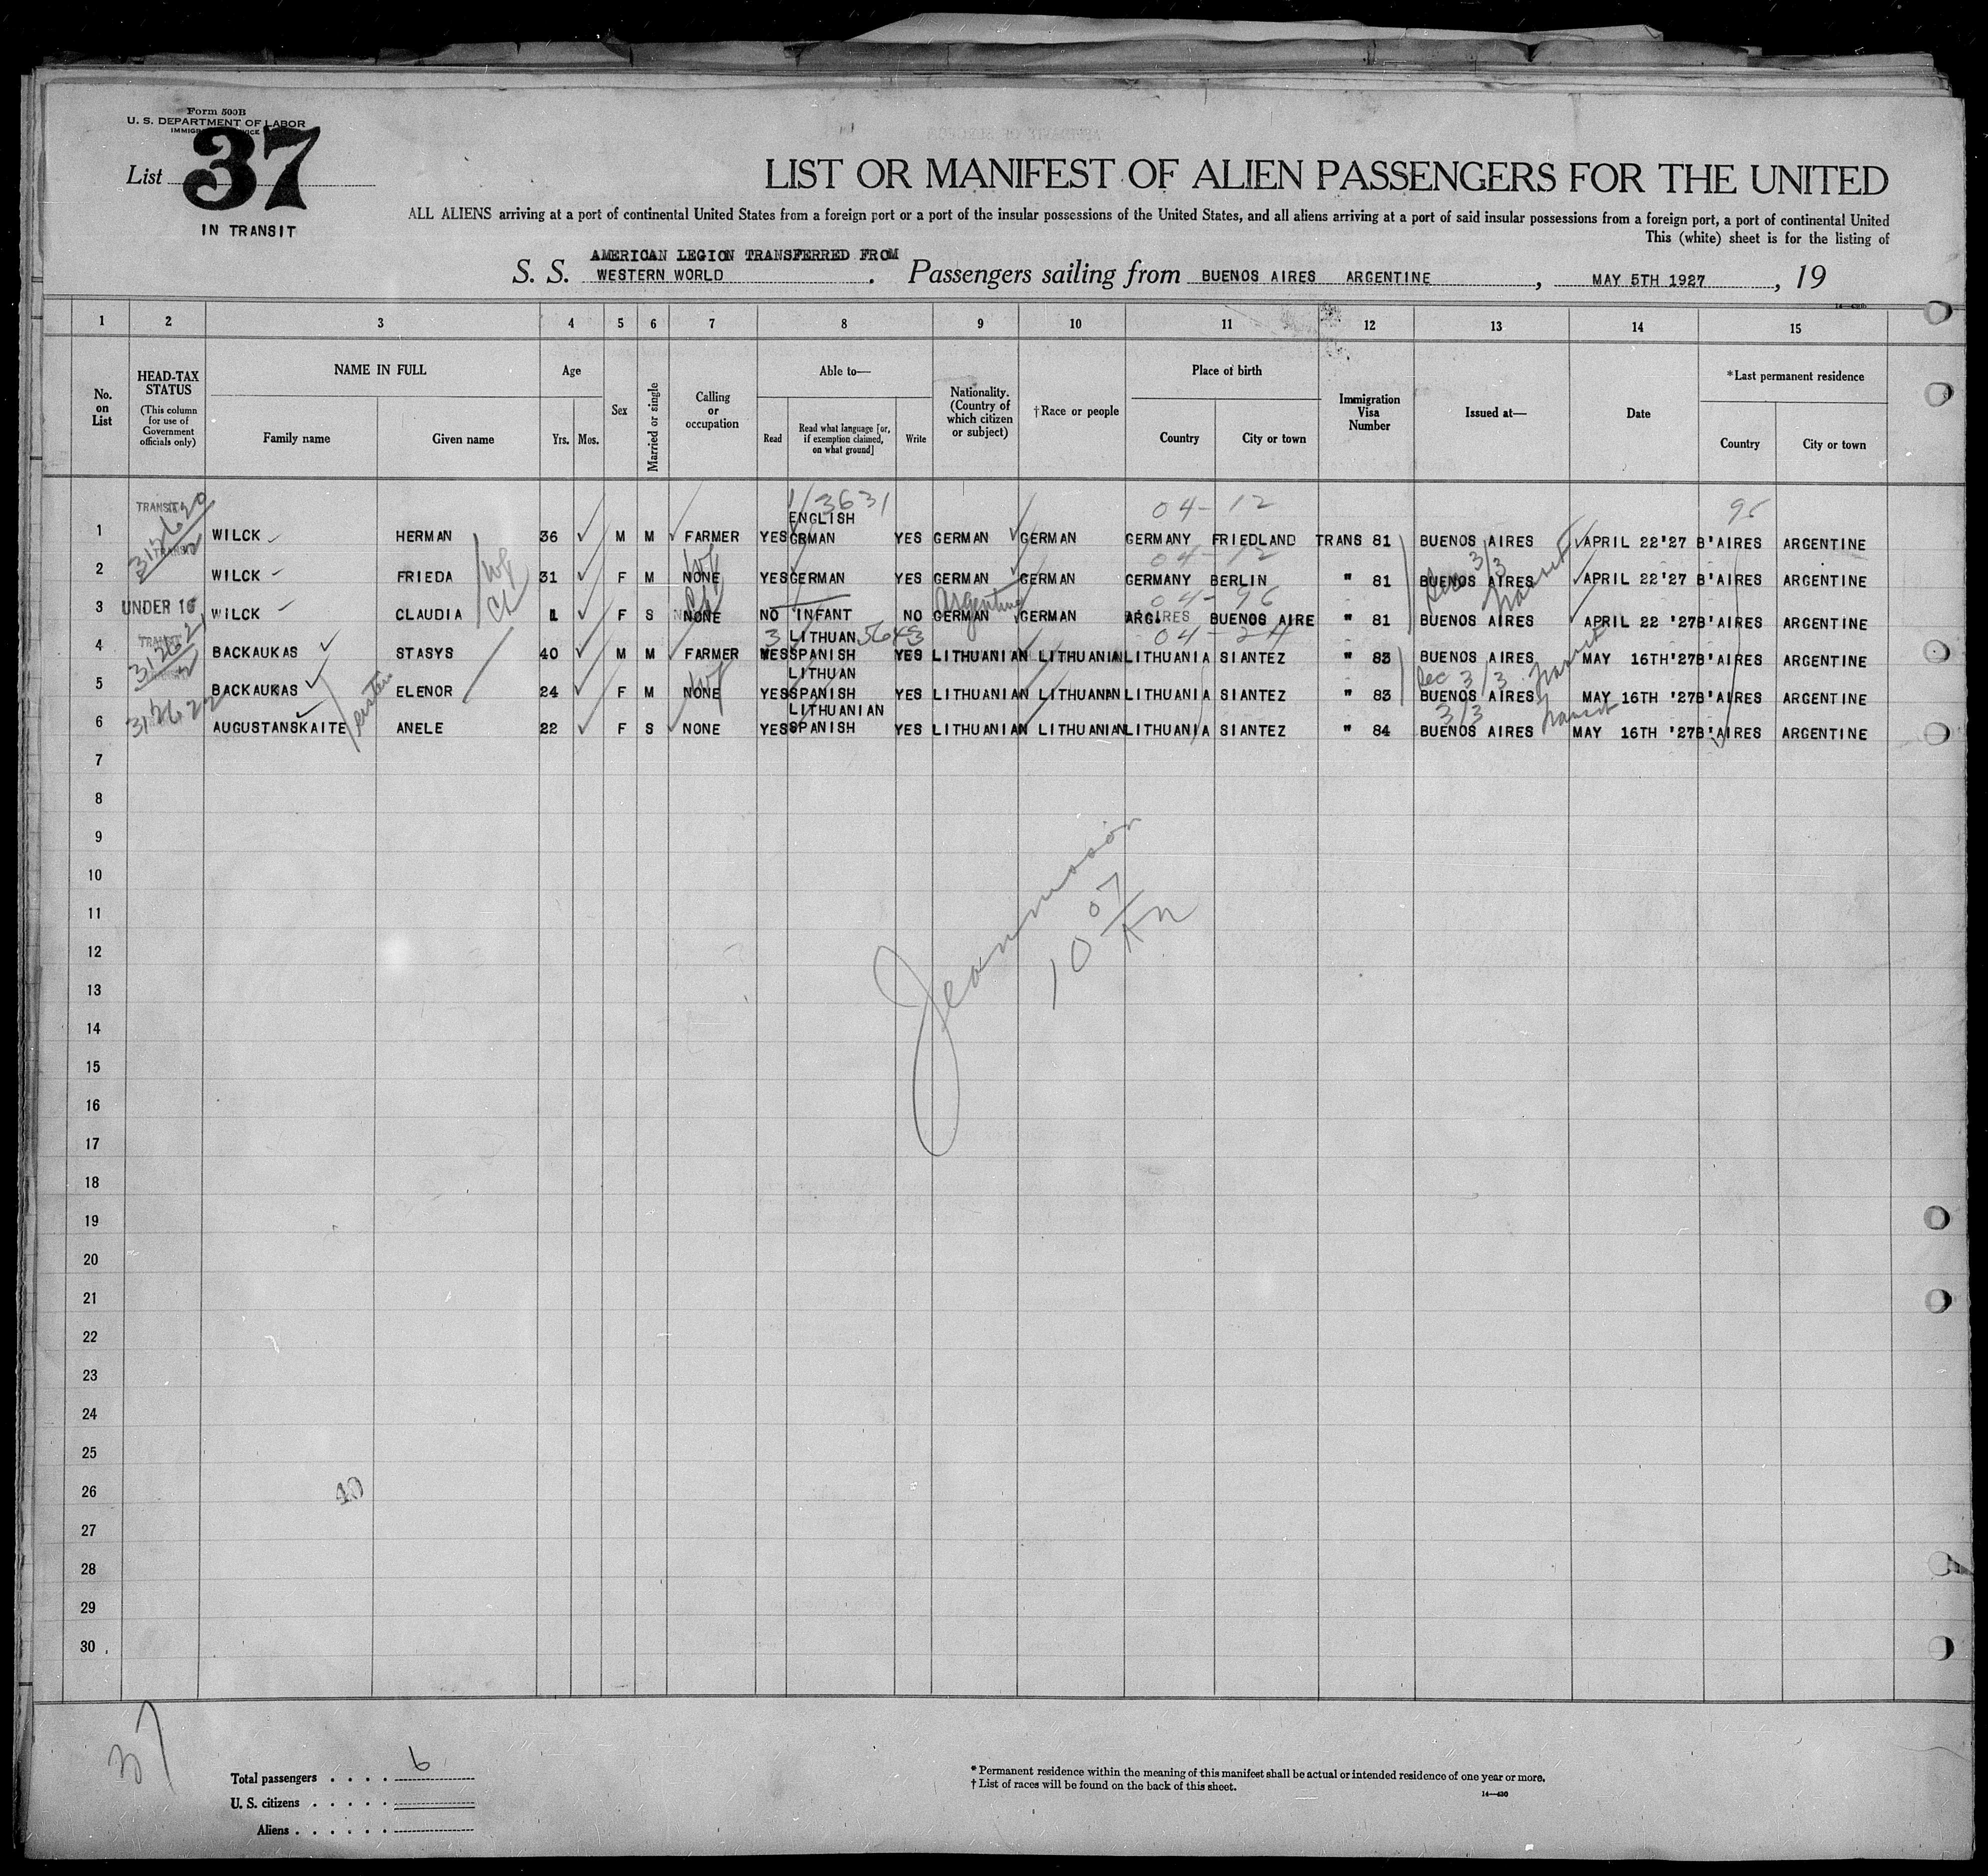 Form 500B
U. S. DEPARTMENT OF LABOR
List 37
IN TRANSIT
LIST OR MANIFEST OF ALIEN PASSENGERS FOR THE UNITED
ALL ALIENS arriving at a port of continental United States from a foreign port or a port of the insular possessions of the United States, and all aliens arriving at a port of said insular possessions from a foreign port, a port of continental United
This (white) sheet is for the listing of
AMERICAN LEGION TRANSFERRED FROM
S. S. WESTERN WORLD . Passengers sailing from BUENOS AIRES ARGENTINE , MAY 5TH 1927 , 19
1 2 3 4 5 6 7 8 9 10 11 12 13 14 15
No. on List
HEAD-TAX STATUS
(This column for use of Government officials only)
NAME IN FULL
Family name
Given name
Age
Yrs. Mos.
Sex
Married or single
Calling or occupation
Able to—
Read
Read what language [or, if exemption claimed, on what ground]
Write
Nationality. (Country of which citizen or subject)
†Race or people
Place of birth
Country
City or town
Immigration Visa Number
Issued at—
Date
*Last permanent residence
Country
City or town
3631 04-12 95
ENGLISH
1 TRANSIT WILCK HERMAN 36 M M FARMER YES GRMAN YES GERMAN GERMAN GERMANY FRIEDLAND TRANS 81 BUENOS AIRES APRIL 22'27 B'AIRES ARGENTINE
04-12
2 WILCK FRIEDA 31 F M NONE YES GERMAN YES GERMAN GERMAN GERMANY BERLIN " 81 BUENOS AIRES APRIL 22'27 B'AIRES ARGENTINE
Argentine 04-96
3 UNDER 16 WILCK CLAUDIA 1 F S NONE NO INFANT NO GERMAN GERMAN ARG. BUENOS AIRE " 81 BUENOS AIRES APRIL 22 '27 B'AIRES ARGENTINE
LITHUAN 04-24
4 BACKAUKAS STASYS 40 M M FARMER YES SPANISH YES LITHUANIAN LITHUANIAN LITHUANIA SIANTEZ " 83 BUENOS AIRES MAY 16TH'27 B'AIRES ARGENTINE
LITHUAN
5 BACKAUKAS ELENOR 24 F M NONE YES SPANISH YES LITHUANIAN LITHUANIAN LITHUANIA SIANTEZ " 83 BUENOS AIRES MAY 16TH '27 B'AIRES ARGENTINE
LITHUANIAN
6 AUGUSTANSKAITE ANELE 22 F S NONE YES SPANISH YES LITHUANIAN LITHUANIAN LITHUANIA SIANTEZ " 84 BUENOS AIRES MAY 16TH '27 B'AIRES ARGENTINE
7
8
9
10
11
12
13
14
15
16
17
18
19
20
21
22
23
24
25
26
40
27
28
29
30
37
Total passengers . . . . 6
U. S. citizens . . . . .
Aliens . . . . . .
* Permanent residence within the meaning of this manifest shall be actual or intended residence of one year or more.
† List of races will be found on the back of this sheet.
14—430